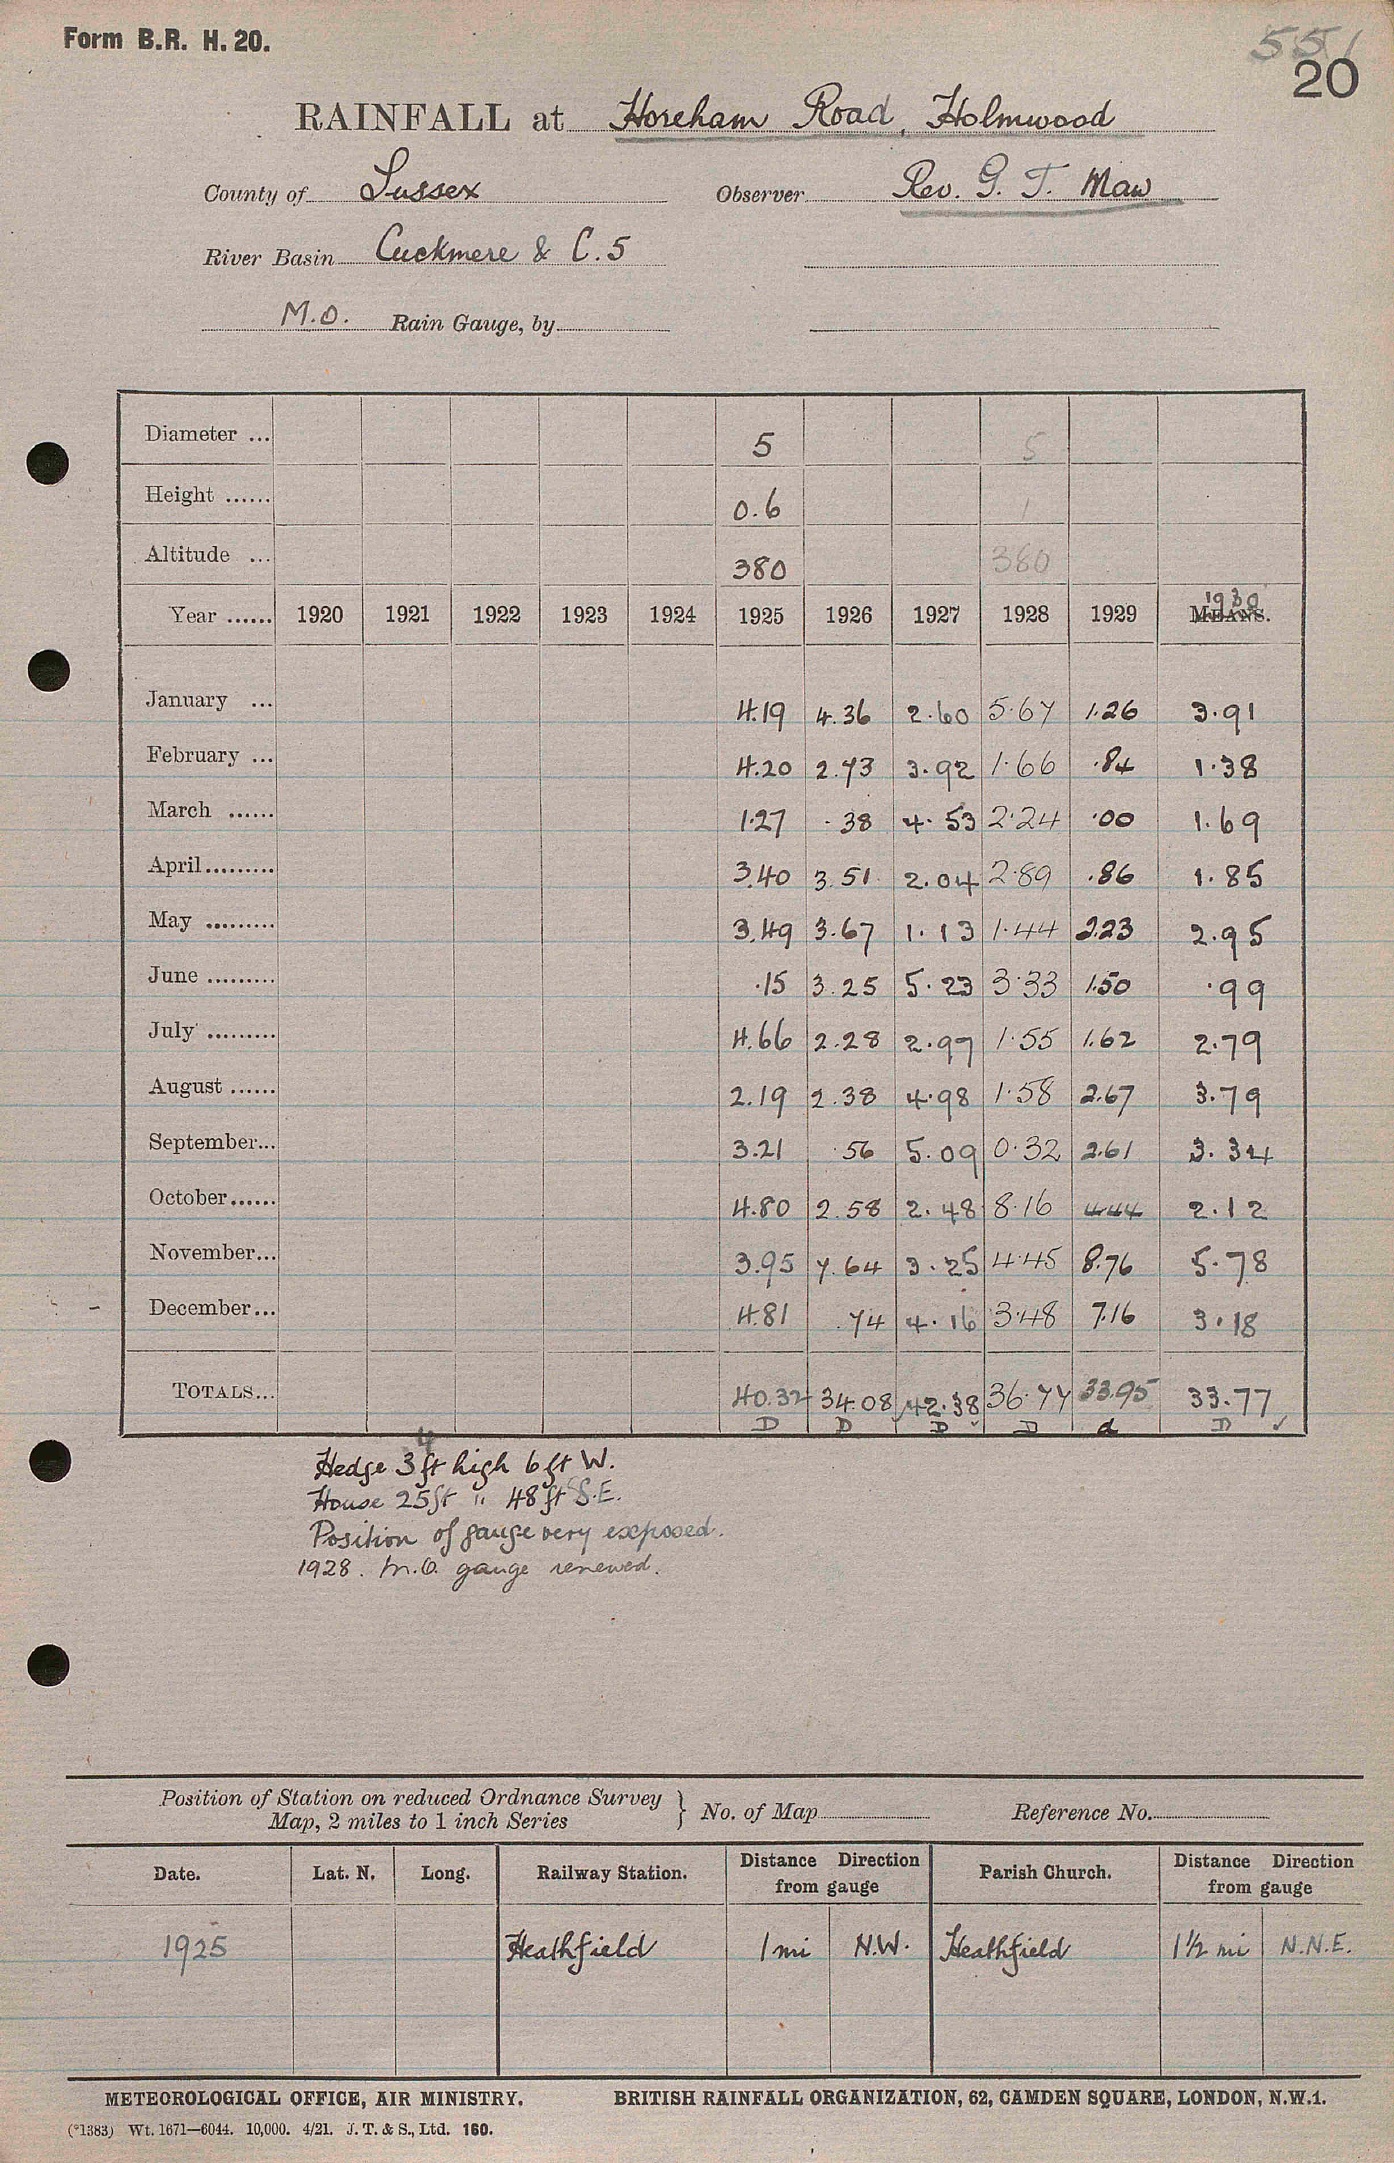 Form B.R. H. 20.
551
20
RAINFALL at Horeham Road, Holmwood
County of Sussex Observer Rev. G. T. Maw
River Basin Cuckmere & C.5
M.O. Rain Gauge, by
Diameter ... 5 5
Height ...... 0.6 1
Altitude ... 380 380
Year ...... 1920 1921 1922 1923 1924 1925 1926 1927 1928 1929 MEANS. 1930
January ... 4.19 4.36 2.60 5.67 1.26 3.91
February ... 4.20 2.73 3.92 1.66 .84 1.38
March ...... 1.27 .38 4.53 2.24 .00 1.69
April ......... 3.40 3.51 2.04 2.89 .86 1.85
May ......... 3.49 3.67 1.13 1.44 2.23 2.95
June ......... .15 3.25 5.23 3.33 1.50 .99
July ......... 4.66 2.28 2.97 1.55 1.62 2.79
August ...... 2.19 2.38 4.98 1.58 2.67 3.79
September... 3.21 .56 5.09 0.32 2.61 3.34
October...... 4.80 2.58 2.48 8.16 4.44 2.12
November... 3.95 7.64 3.25 4.45 8.76 5.78
December... 4.81 .74 4.16 3.48 7.16 3.18
TOTALS... 40.32 34.08 42.38 36.77 33.95 33.77
D D D D d D
4
Hedge 3 ft high 6 ft W.
House 25 ft " 48 ft S.E.
Position of gauge very exposed.
1928. M.O. gauge renewed.
Position of Station on reduced Ordnance Survey
Map, 2 miles to 1 inch Series } No. of Map Reference No.
Date. Lat. N. Long. Railway Station. Distance Direction from gauge Parish Church. Distance Direction from gauge
1925 Heathfield 1 mi N.W. Heathfield 1½ mi N.N.E.
METEOROLOGICAL OFFICE, AIR MINISTRY. BRITISH RAINFALL ORGANIZATION, 62, CAMDEN SQUARE, LONDON, N.W.1.
(*1383) Wt. 1671—6044. 10,000. 4/21. J. T. & S., Ltd. 160.